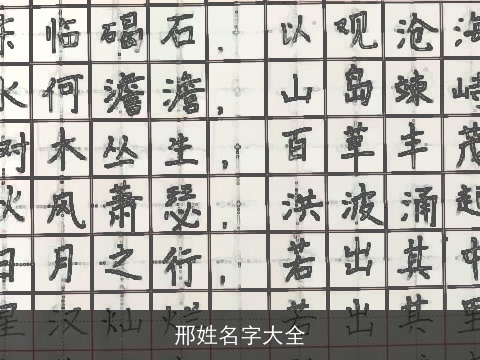 东临碣石，以观沧海
水何澹澹，山岛竦峙
树木丛生，百草丰茂
秋风萧瑟，洪波涌起
日月之行，若出其中
星汉灿烂，若出其里
邢姓名字大全